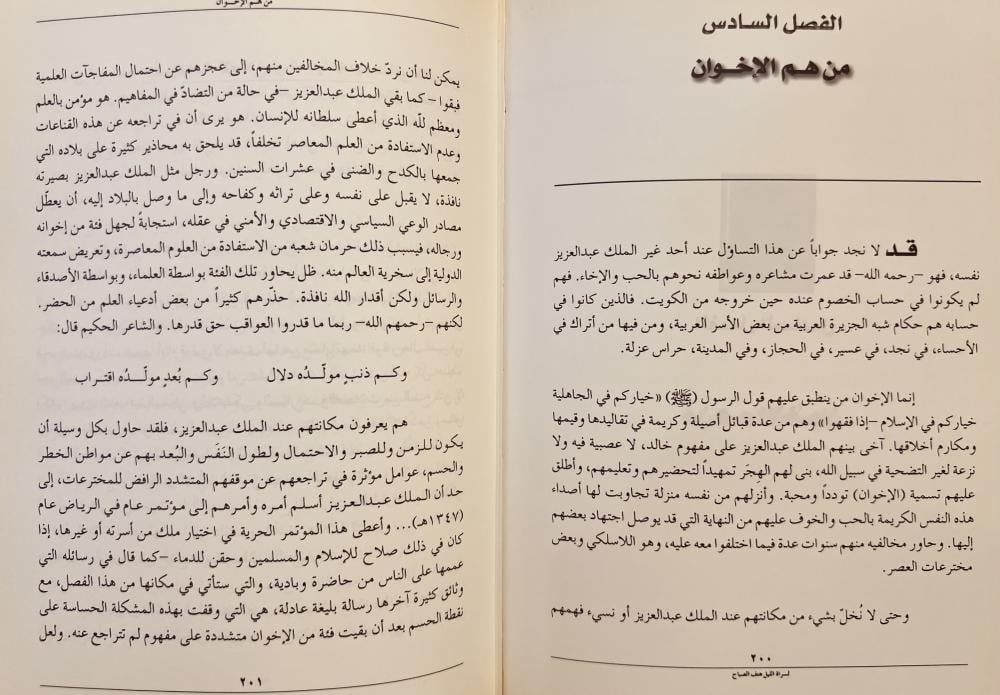 الفصل السادس
من هم الإخوان
قد لا نجد جواباً عن هذا التساؤل عند أحد غير الملك عبدالعزيز
نفسه، فهو –رحمه الله– قد عمرت مشاعره وعواطفه نحوهم بالحب والإخاء. فهم
لم يكونوا في حساب الخصوم عنده حين خروجه من الكويت. فالذين كانوا في
حسابه هم حكام شبه الجزيرة العربية من بعض الأسر العربية، ومن فيها من أتراك في
الأحساء، في نجد، في عسير، في الحجاز، وفي المدينة، حراس عزلة.
إنما الإخوان من ينطبق عليهم قول الرسول (ﷺ) «خياركم في الجاهلية
خياركم في الإسلام –إذا فقهوا» وهم من عدة قبائل أصيلة وكريمة في تقاليدها وقيمها
ومكارم أخلاقها. آخى بينهم الملك عبدالعزيز على مفهوم خالد، لا عصبية فيه ولا
نزعة لغير التضحية في سبيل الله، بنى لهم الهِجَر تمهيداً لتحضيرهم وتعليمهم، وأطلق
عليهم تسمية (الإخوان) تودداً ومحبة. وأنزلهم من نفسه منزلة تجاوبت لها أصداء
هذه النفس الكريمة بالحب والخوف عليهم من النهاية التي قد يوصل اجتهاد بعضهم
إليها. وحاور مخالفيه منهم سنوات عدة فيما اختلفوا معه عليه، وهو اللاسلكي وبعض
مخترعات العصر.
وحتى لا نُخلّ بشيء من مكانتهم عند الملك عبدالعزيز أو نسيء فهمهم
٢٠٠
لسراة الليل هتف الصباح
من هم الإخوان
يمكن لنا أن نردّ خلاف المخالفين منهم، إلى عجزهم عن احتمال المفاجآت العلمية
فبقوا –كما بقي الملك عبدالعزيز –في حالة من التضادّ في المفاهيم. هو مؤمن بالعلم
ومعظم للّه الذي أعطى سلطانه للإنسان. هو يرى أن في تراجعه عن هذه القناعات
وعدم الاستفادة من العلم المعاصر تخلفاً، قد يلحق به محاذير كثيرة على بلاده التي
جمعها بالكدح والضنى في عشرات السنين. ورجل مثل الملك عبدالعزيز بصيرته
نافذة، لا يقبل على نفسه وعلى تراثه وكفاحه وإلى ما وصل بالبلاد إليه، أن يعطّل
مصادر الوعي السياسي والاقتصادي والأمني في عقله، استجابةً لجهل فئة من إخوانه
ورجاله، فيسبب ذلك حرمان شعبه من الاستفادة من العلوم المعاصرة، وتعريض سمعته
الدولية إلى سخرية العالم منه. ظل يحاور تلك الفئة بواسطة العلماء، وبواسطة الأصدقاء
والرسائل ولكن أقدار الله نافذة. حذّرهم كثيراً من بعض أدعياء العلم من الحضر.
لكنهم –رحمهم الله– ربما ما قدروا العواقب حق قدرها. والشاعر الحكيم قال:
وكم ذنبٍ مولّدُه دلال وكم بُعدٍ مولّدُه اقتراب
هم يعرفون مكانتهم عند الملك عبدالعزيز، فلقد حاول بكل وسيلة أن
يكون للزمن وللصبر والاحتمال ولطول النَفَس والبُعد بهم عن مواطن الخطر
والحسم، عوامل مؤثرة في تراجعهم عن موقفهم المتشدد الرافض للمخترعات، إلى
حد أن الملك عبدالعزيز أسلم أمره وأمرهم إلى مؤتمر عام في الرياض عام
(١٣٤٧هـ)... وأعطى هذا المؤتمر الحرية في اختيار ملك من أسرته أو غيرها، إذا
كان في ذلك صلاح للإسلام والمسلمين وحقن للدماء –كما قال في رسائله التي
عممها على الناس من حاضرة وبادية، والتي ستأتي في مكانها من هذا الفصل، مع
وثائق كثيرة آخرها رسالة بليغة عادلة، هي التي وقفت بهذه المشكلة الحساسة على
نقطة الحسم بعد أن بقيت فئة من الإخوان متشددة على مفهوم لم تتراجع عنه. ولعل
٢٠١